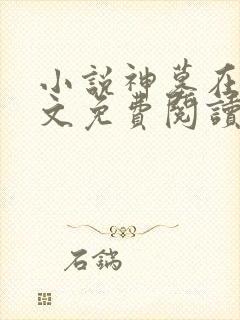 小說神墓在
文免費閱讀
石鍋